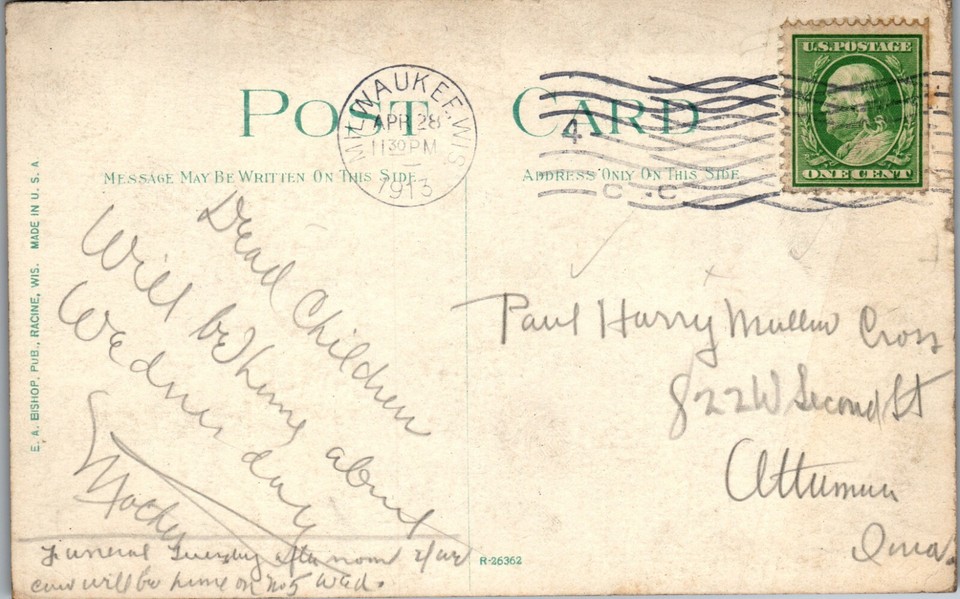 POST CARD
MESSAGE MAY BE WRITTEN ON THIS SIDE
ADDRESS ONLY ON THIS SIDE
MILWAUKEE, WIS.
APR 28
11 30 PM
1913
4
C. C
U.S. POSTAGE
ONE CENT
E. A. BISHOP, PUB., RACINE, WIS. MADE IN U. S. A
Dead Children
Will be home about
Wednesday
Mother
Funeral Tuesday afternoon
will be home on No 5 Wed.
Paul Harry Cross
822 W Second St
Ottumwa
Iowa
R-26362